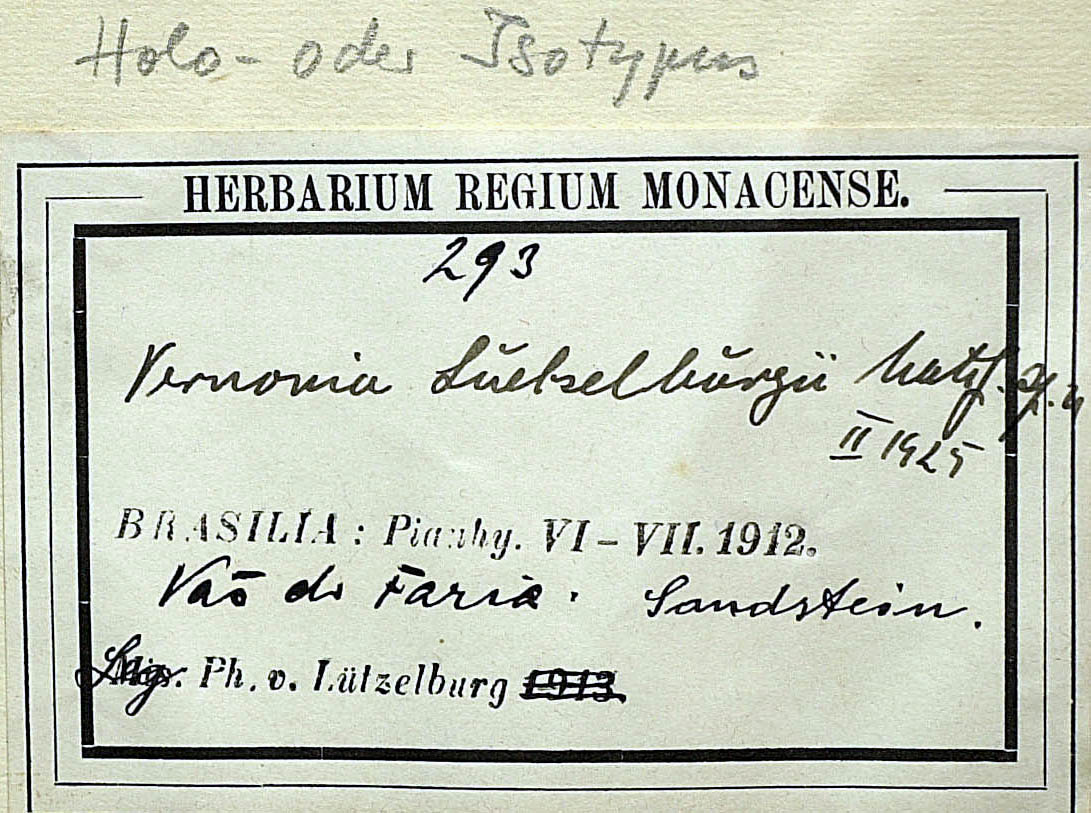 Holo- oder Isotypus
HERBARIUM REGIUM MONACENSE.
293
Vernonia Luetzelburgii Mattf. sp. n
II 1925
BRASILIA: Piauhy. VI – VII. 1912.
Vaō do Faria. Sandstein.
Leg. Ph. v. Lützelburg 1913.